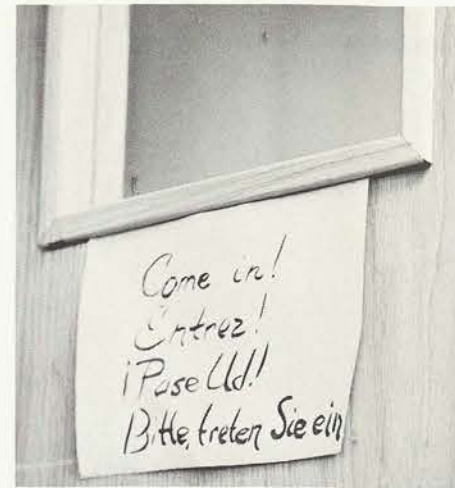 Come in!
Entrez!
¡Pase Ud.!
Bitte, treten Sie ein